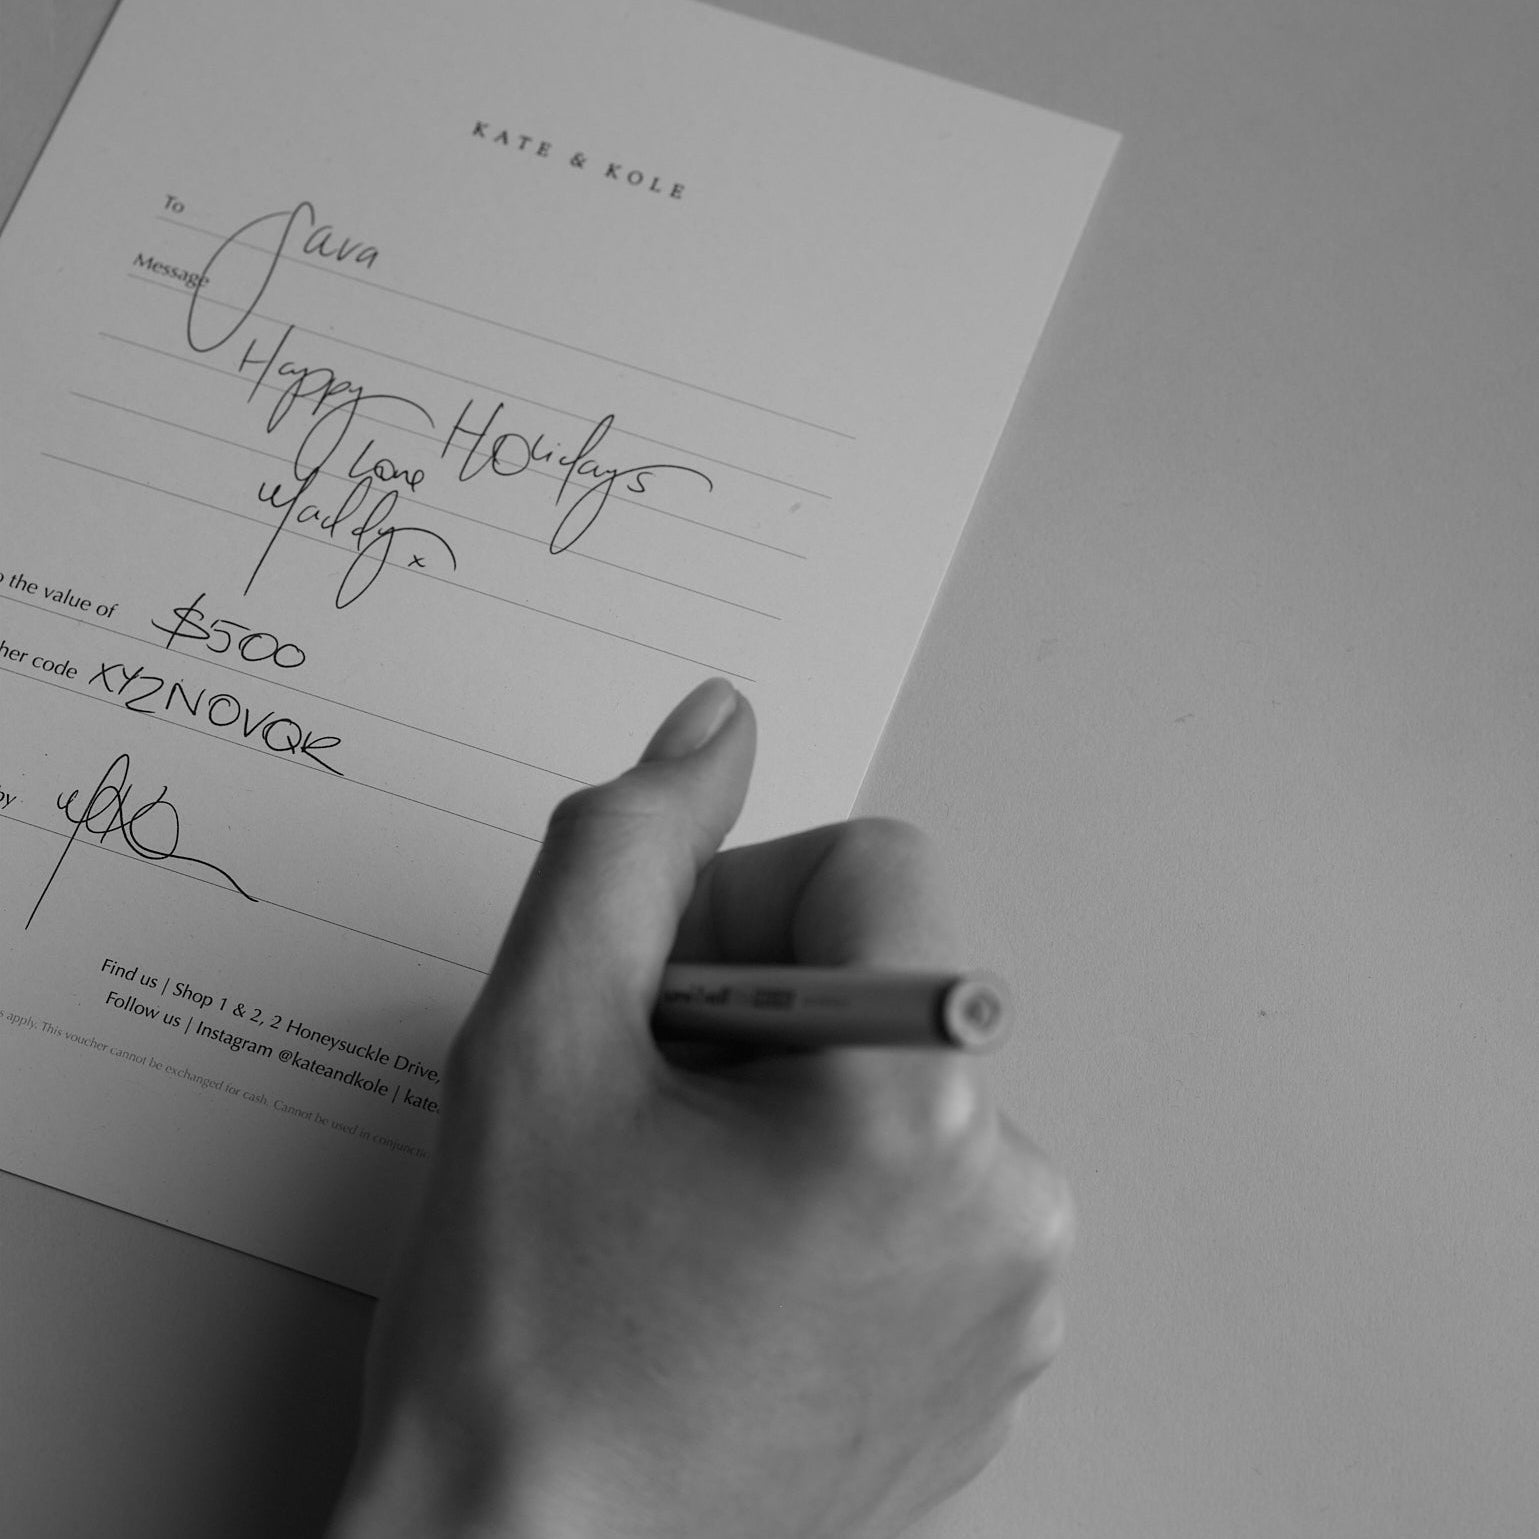 KATE & KOLE
To Sara
Message
Happy Holidays
Love
Maddy x
the value of $500
her code XYZNOVQR
by
Find us | Shop 1 & 2, 2 Honeysuckle Drive,
Follow us | Instagram @kateandkole | kate
apply. This voucher cannot be exchanged for cash. Cannot be used in